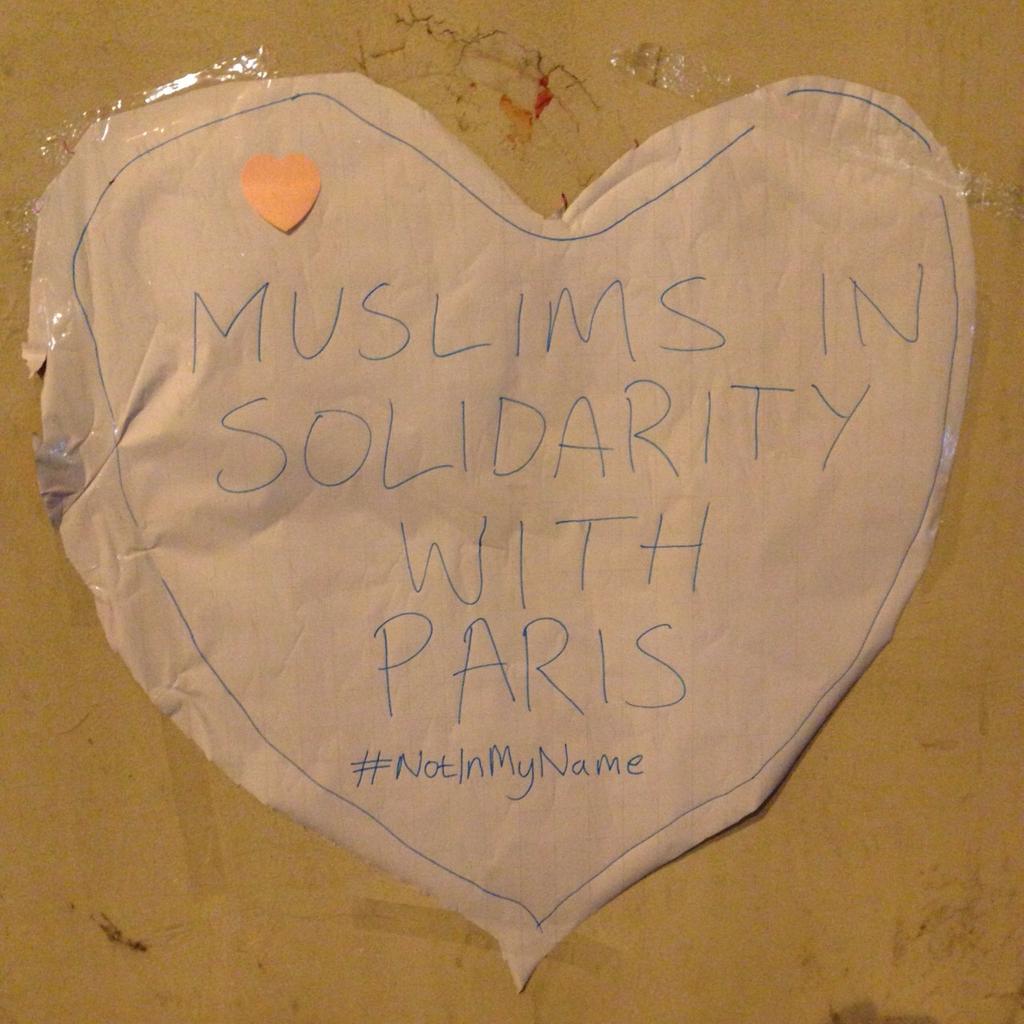 MUSLIMS IN
SOLIDARITY
WITH
PARIS
#NotInMyName